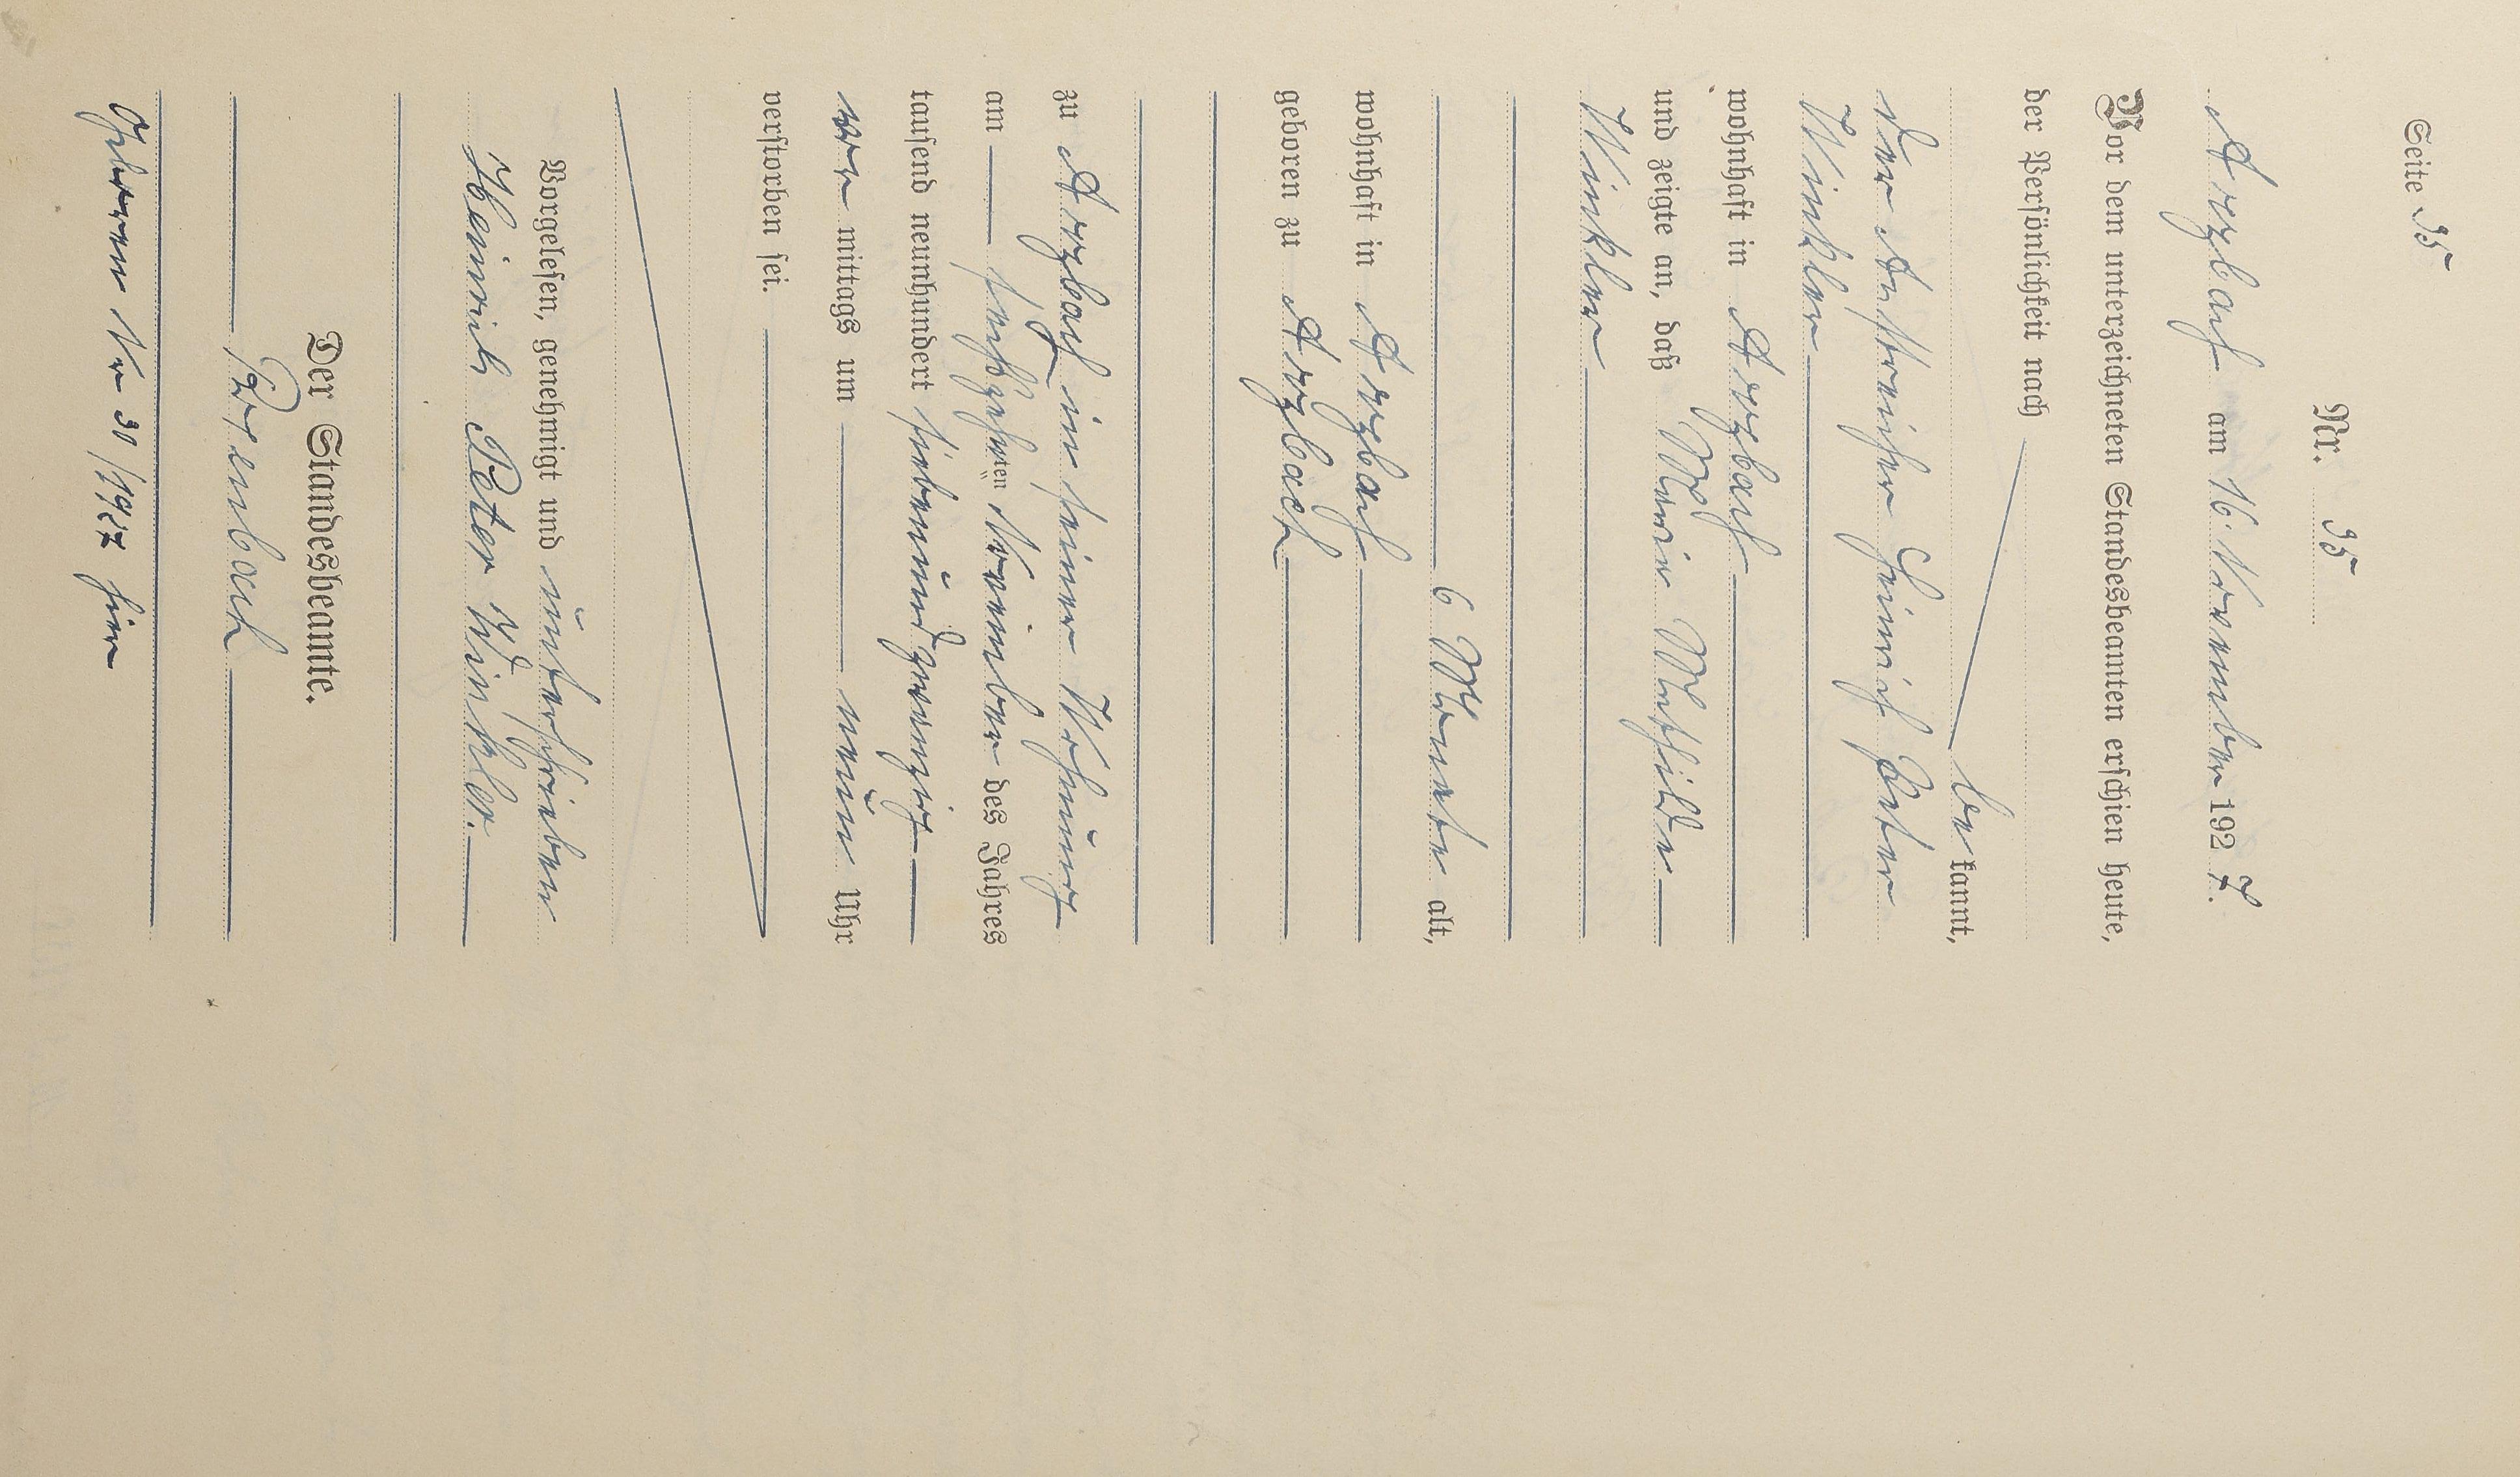 Seite 35
Nr. 35
Arzbach am 16. November 1927.
Vor dem unterzeichneten Standesbeamten erschien heute,
der Persönlichkeit nach
bekannt,
der Anstreicher Heinrich Peter
Winkler
wohnhaft in Arzbach
und zeigte an, daß Maria Mathilde
Winkler
6 Monate alt,
wohnhaft in Arzbach
geboren zu Arzbach
zu Arzbach in seiner Wohnung
am sechszehnten November des Jahres
tausend neunhundert siebenundzwanzig
vor mittags um neun Uhr
verstorben sei.
Vorgelesen, genehmigt und unterschrieben
Heinrich Peter Winkler.
Der Standesbeamte.
Geboren Nr 30/1927 hier